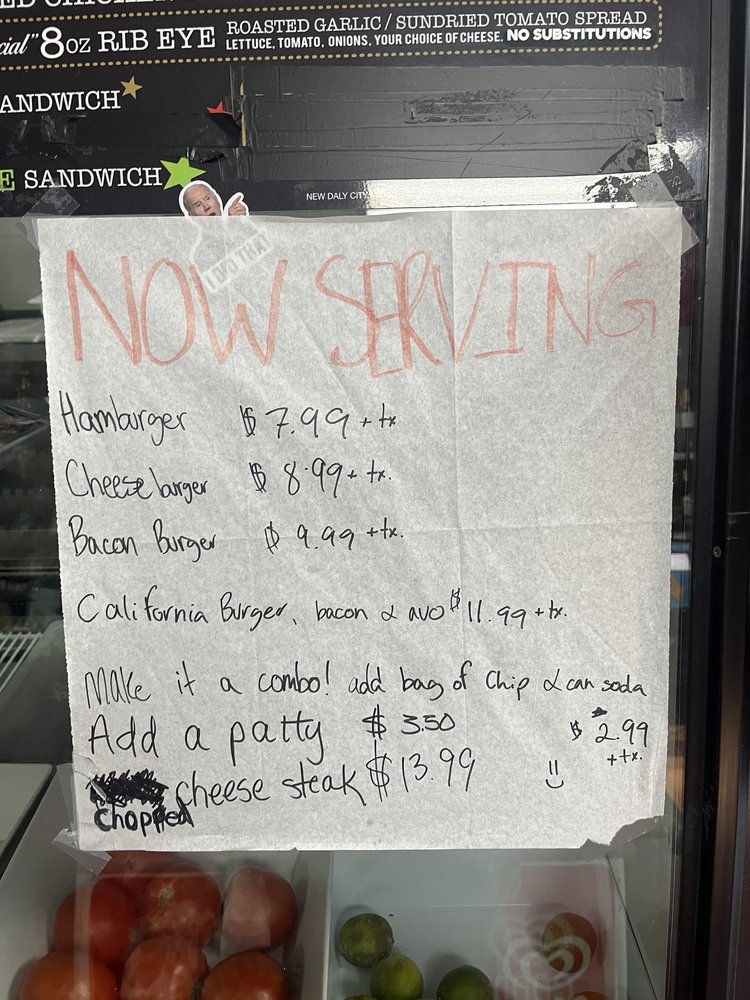 8oz RIB EYE
ROASTED GARLIC / SUNDRIED TOMATO SPREAD
LETTUCE, TOMATO, ONIONS, YOUR CHOICE OF CHEESE. NO SUBSTITUTIONS
SANDWICH
SANDWICH
NEW DALY CITY
I DID THAT
NOW SERVING
Hamburger $7.99 + tx
Cheese burger $8.99 + tx.
Bacon Burger $9.99 + tx.
California Burger, bacon & avo $11.99 + tx.
Make it a combo! add bag of Chip & can soda
$2.99
+ tx.
Add a patty $3.50
Chopped cheese steak $13.99